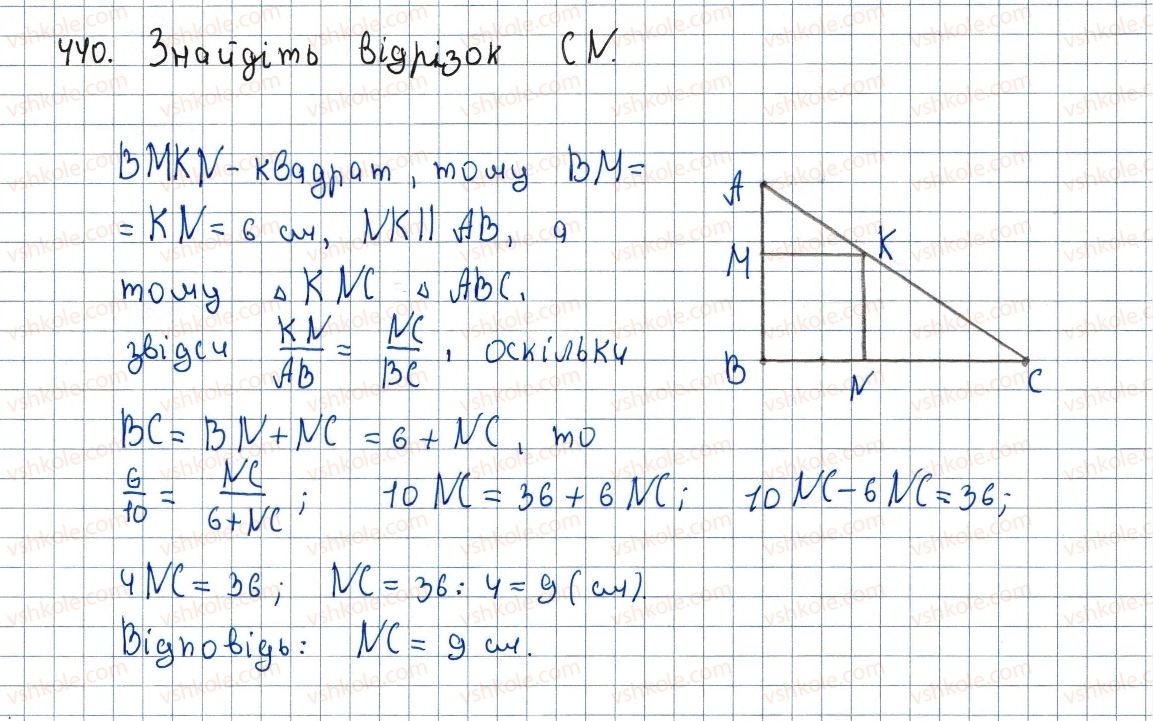 440. Знайдіть відрізок CN.
BMKN - квадрат, тому BM =
= KN = 6 см, NK || AB, а
тому △ KNC △ ABC,
звідси KN/AB = NC/BC, оскільки
BC = BN + NC = 6 + NC, то
6/10 = NC/(6+NC); 10 NC = 36 + 6 NC; 10 NC - 6 NC = 36;
4 NC = 36; NC = 36 : 4 = 9 (см).
Відповідь: NC = 9 см.
A
K
M
B
N
C
vshkole.com